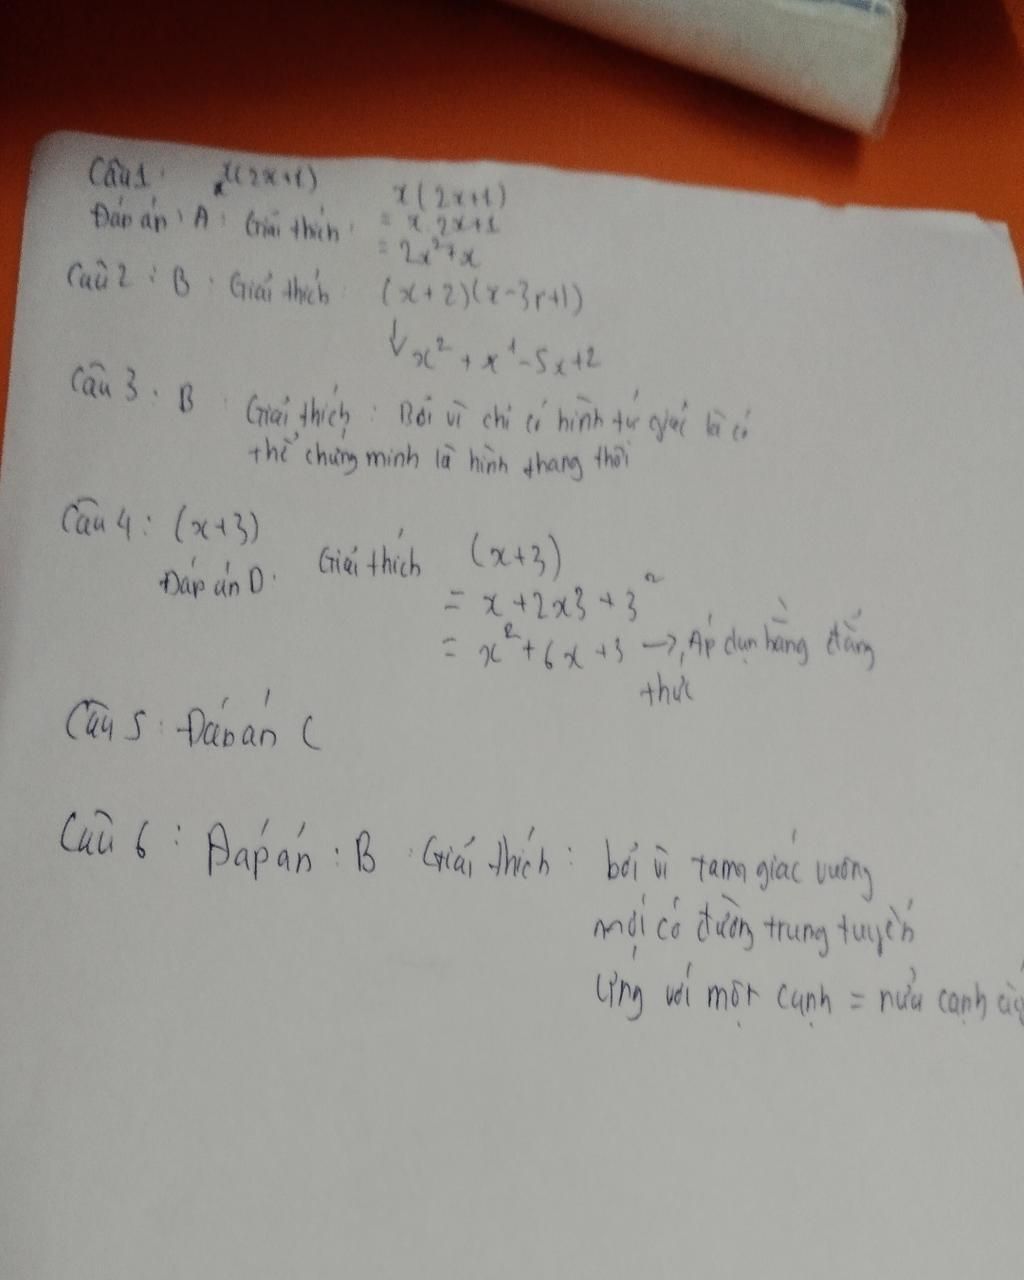 Câu 1: x(2x+1) x(2x+1)
Đáp án: A: Giải thích: = x.2x+1
= 2x²+x
Câu 2: B: Giải thích: (x+2)(x-3x+1)
↓ x² + x¹ - 5x+2
Câu 3: B Giải thích: Bởi vì chỉ có hình tứ giác là có
thể chứng minh là hình thang thôi
Câu 4: (x+3) Giải thích (x+3)
Đáp án D. = x+2x3+3²
= x²+6x+3 → Áp dụn hằng đẳng
thức
Câu 5: Đáp án C
Câu 6: Đáp án: B Giải thích: bởi vì tam giác vuông
mới có đường trung tuyến
ứng với một cạnh = nửa cạnh